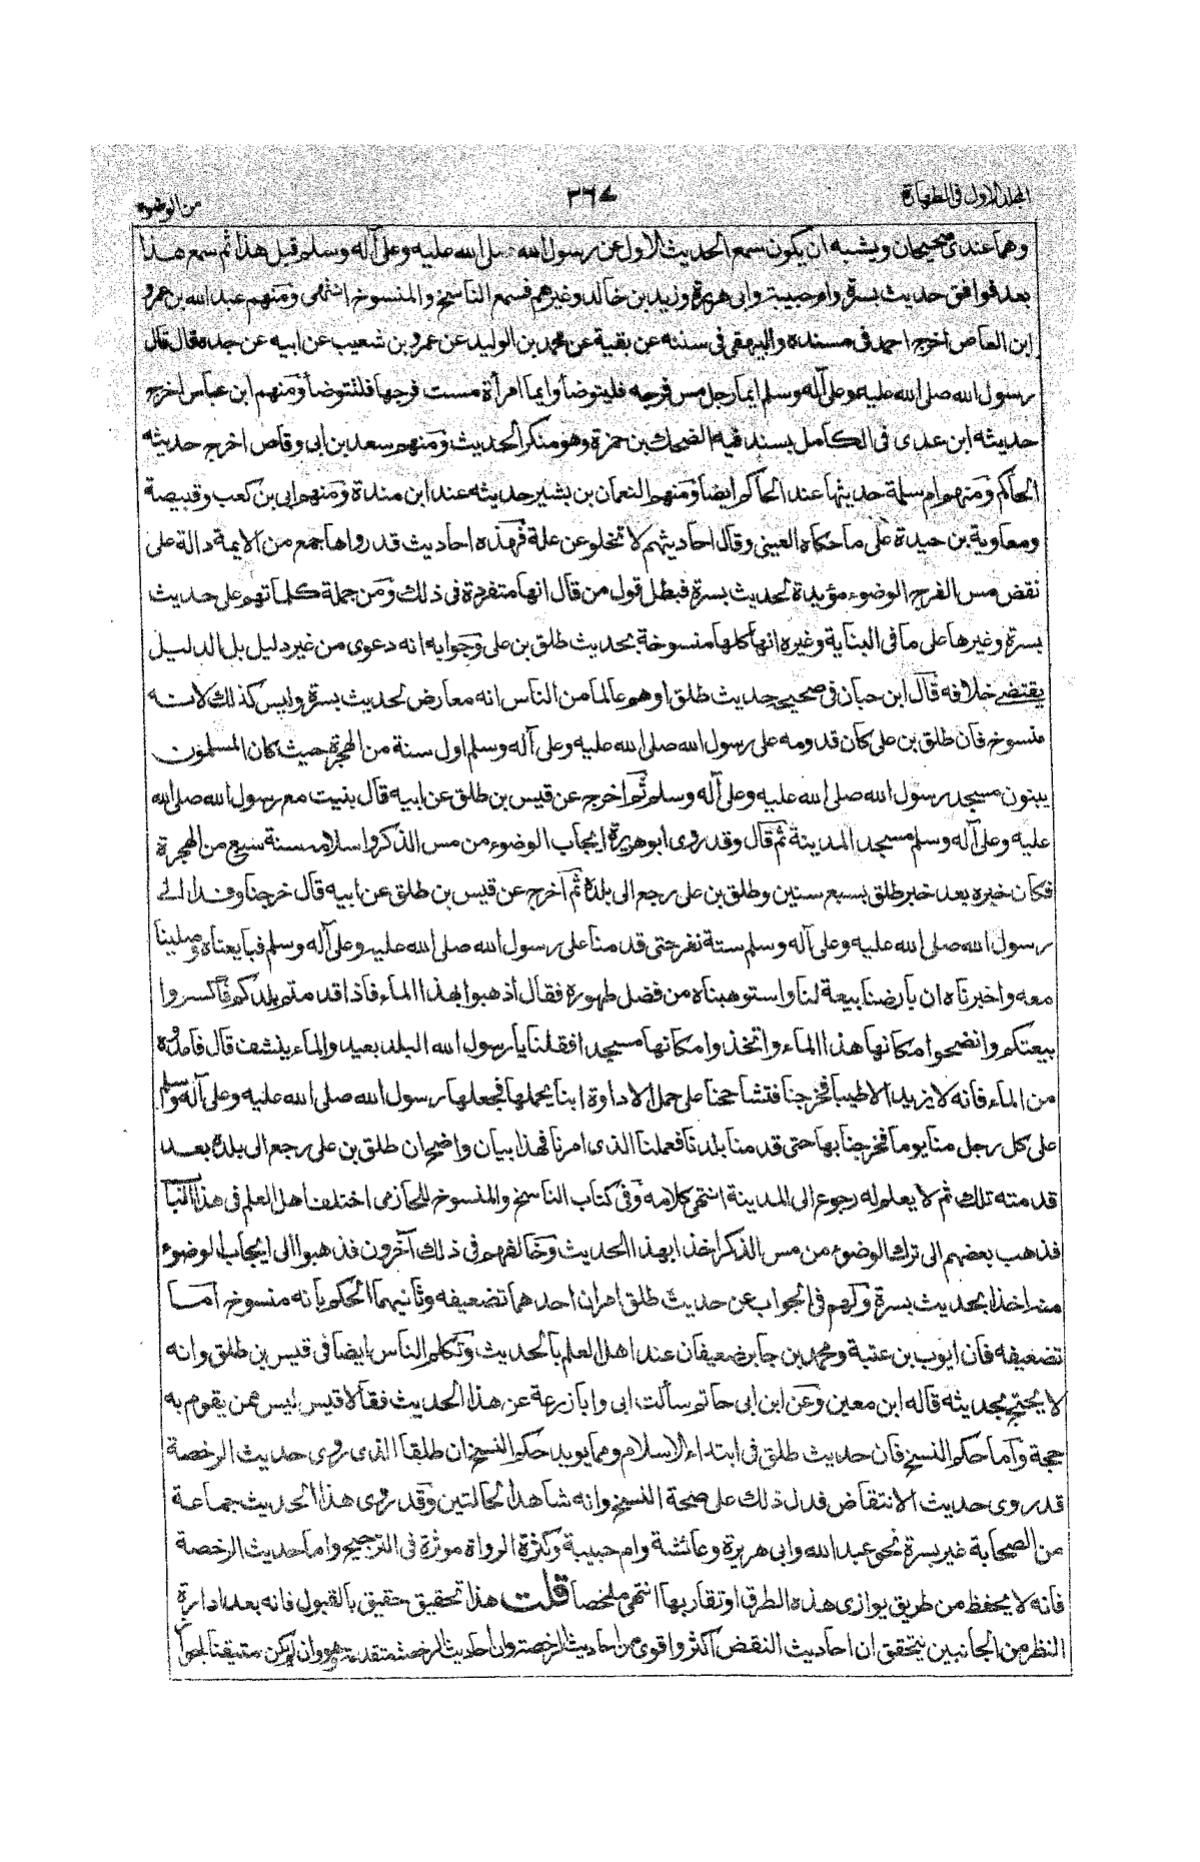 المجلد الاول فى الطهارة ٢٦٧ من الوضوء
وهما عندى صحيحان ويشبه ان يكون سمع الحديث الاول عن رسول الله صلى الله عليه وعلى آله وسلم قبل هذا ثم سمع هذا
بعد فوافق حديث بسرة وام حبيبة وابى هريرة وزيد بن خالد وغيرهم فسمع الناسخ والمنسوخ انتهى ومنهم عبد الله بن عمرو
ابن العاص اخرج احمد فى مسنده والبيهقى فى سننه عن بقية عن محمد بن الوليد عن عمرو بن شعيب عن ابيه عن جده قال قال
رسول الله صلى الله عليه وعلى آله وسلم ايما رجل مس فرجه فليتوضأ وايما امرأة مست فرجها فلتتوضأ ومنهم ابن عباس اخرج
حديثه ابن عدى فى الكامل بسند فيه الضحاك بن حمزة وهو منكر الحديث ومنهم سعد بن ابى وقاص اخرج حديثه
الحاكم ومنهم ام سلمة حديثها عند الحاكم ايضا ومنهم النعمان بن بشير حديثه عند ابن مندة ومنهم ابى بن كعب وقبيصة
ومعاوية بن حيدة على ما حكاه العينى وقال احاديثهم لا تخلو عن علة فهذه احاديث قد رواها جمع من الايمة دالة على
نقض مس الفرج الوضوء مؤيدة لحديث بسرة فبطل قول من قال انها متفردة فى ذلك ومن جملة كلماتهم على حديث
بسرة وغيرها على ما فى البناية وغيره انها كلها منسوخة بحديث طلق بن على وجوابه انه دعوى من غير دليل بل الدليل
يقتضے خلافه قال ابن حبان فى صحيحه حديث طلق اوهم عالما من الناس انه معارض لحديث بسرة وليس كذلك لانه
منسوخ فان طلق بن على كان قدومه على رسول الله صلى الله عليه وعلى آله وسلم اول سنة من الهجرة حيث كان المسلمون
يبنون مسجد رسول الله صلى الله عليه وعلى آله وسلم ثم اخرج عن قيس بن طلق عن ابيه قال بنيت مع رسول الله صلى الله
عليه وعلى آله وسلم مسجد المدينة ثم قال وقد روى ابو هريرة ايجاب الوضوء من مس الذكر واسلامه سنة سبع من الهجرة
فكان خبره بعد خبر طلق بسبع سنين وطلق بن على رجع الى بلده ثم اخرج عن قيس بن طلق عن ابيه قال خرجنا وفدا الے
رسول الله صلى الله عليه وعلى آله وسلم ستة نفر حتى قدمنا على رسول الله صلى الله عليه وعلى آله وسلم فبايعناه وصلينا
معه واخبرناه ان بارضنا بيعة لنا واستوهبناه من فضل طهوره فقال اذهبوا بهذا الماء فاذا قدمتم بلدكم فاكسروا
بيعتكم وانضحوا مكانها هذا الماء واتخذوا مكانها مسجدا فقلنا يا رسول الله البلد بعيد والماء ينشف قال فامدوه
من الماء فانه لا يزيد الا طيبا فخرجنا فتشاححنا على حمل الاداوة اينا يحملها فجعلها رسول الله صلى الله عليه وعلى آله وسلم
على كل رجل منا يوما فخرجنا بها حتى قدمنا بلدنا ففعلنا الذى امرنا فهذا بيان واضح ان طلق بن على رجع الى بلده بعد
قدمته تلك ثم لا يعلم له رجوع الى المدينة انتهى كلامه وفى كتاب الناسخ والمنسوخ للحازمى اختلف اهل العلم فى هذا الباب
فذهب بعضهم الى ترك الوضوء من مس الذكر اخذا بهذا الحديث وخالفهم فى ذلك آخرون فذهبوا الى ايجاب الوضوء
منه اخذا بحديث بسرة ولهم فى الجواب عن حديث طلق امران احدهما تضعيفه وثانيهما الحكم بانه منسوخ اما
تضعيفه فان ايوب بن عتبة ومحمد بن جابر ضعيفان عند اهل العلم بالحديث وتكلم الناس ايضا فى قيس بن طلق وانه
لا يحتج بحديثه قاله ابن معين وعن ابن ابى حاتم سألت ابى وابا زرعة عن هذا الحديث فقالا قيس ليس ممن يقوم به
حجة واما حكم النسخ فان حديث طلق فى ابتداء الاسلام ومما يويد حكم النسخ ان طلقا الذى روى حديث الرخصة
قد روى حديث الانتقاض فدل ذلك على صحة النسخ وانه شاهد الحالتين وقد روى هذا الحديث جماعة
من الصحابة غير بسرة نحو عبد الله وابى هريرة وعائشة وام حبيبة وكثرة الرواة موثرة فى الترجيح واما حديث الرخصة
فانه لا يحفظ من طريق يوازى هذه الطرق او تقاربها انتهى ملخصا قلت هذا تحقيق حقيق بالقبول فانه بعد ادارة
النظر من الجانبين يتحقق ان احاديث النقض اكثر واقوى من احاديث الرخصة وان احاديث الرخصة متقدمة وان لم يكن متيقنا